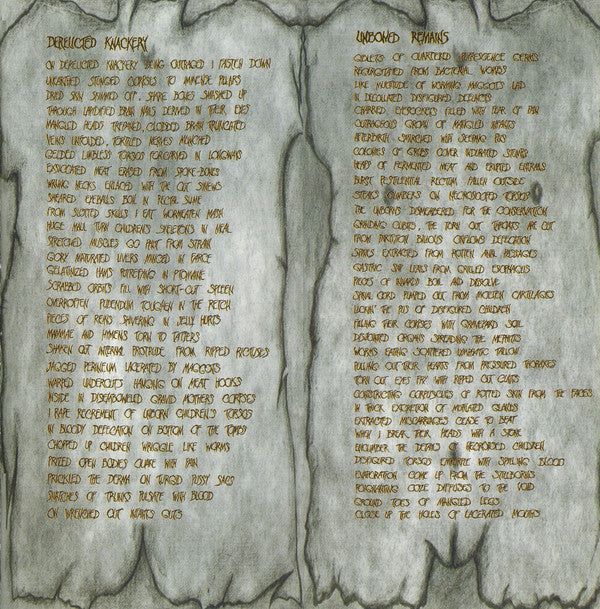 DERELICTED KNACKERY
ON DERELICTED KNACKERY BEING OUTRAGED I FASTEN DOWN
UNEARTHED STINGED CORPSES TO IMMENSE PILLARS
DRIED SKIN SKINNED OFF, SPARE BONES SMASHED UP
THROUGH LIQUIFIED BRAIN NAILS DERIVED IN THEIR EYES
MANGLED HEADS TREPANED, CLODDED BRAIN TRUNCATED
VEINS UNFOLDED, TORTILED NERVES MUNCHED
GELDED LIMBLESS TORSOS FORCARVED IN LONGWAYS
EXSICCATED MEAT ERASED FROM SPOKE-BONES
WRUNG NECKS ENLACED WITH THE CUT SINEWS
SMEARED EYEBALLS BOIL IN RECTAL SLIME
FROM SLOTTED SKULLS I EAT WORMEATEN MASH
HUGE MAUL TURN CHILDREN'S SKELETONS IN MEAL
STRETCHED MUSCLES GO PHUT FROM STRAIN
GORY MATURATED LIVERS MINCED IN FARCE
GELATINIZED HAMS PUTREFYING IN PTOMAINE
SCRABBED ORBITS FILL WITH SHORT-CUT SPLEEN
OVERROTTEN PUDENDUM TOUGHEN IN THE RETCH
PIECES OF REINS SHIVERING IN JELLY HURTS
MAMMAE AND HYMENS TORN TO TATTERS
SHAKEN OUT INTERNAL FROM RIPPED RICTUSES
JAGGED PERINEUM LACERATED BY MAGGOTS
WARPED UNDERCUTS HANGING ON MEAT HOOKS
INSIDE IN DISEMBOWELLED GRAVID MOTHERS CORPSES
IN BLOODY DEFECATION ON BOTTOM OF THE TOMBS
CHOPPED UP CHILDREN WRIGGLE LIKE WORMS
PRIZED OPEN BODIES QUAKE WITH PAIN
PRICKLED THE DERMA ON TURGID PUSSY SACS
SWITCHES OF TRUNKS PULSATE WITH BLOOD
ON WRENCHED OUT INFANTS GUTS
UNBORNED REMAINS
GIBLETS OF QUARTERED GERMS
REGURGITATED FROM BACTERIAL WOMBS
LIKE MULTITUDE OF WORMING MAGGOTS LAID
IN DECOLLATED DISFIGURED DEFUNCTS
CHARRED EYESOCKETS FILLED WITH FEAR OF PAIN
OUTRAGEOUS GROWL OF MANGLED INFANTS
AFTERBIRTH SMEARED WITH SEEPING PUS
COLONIES OF GRUBS COVER INDURATED STUMPS
HEAPS OF FERMENTED MEAT AND ERUPTED ENTRAILS
BURST PESTILENTIAL RECTUM FALLEN OUTSIDE
STEAKS ON NECROROOTED TORSOS
THE UNBORNS DISMEMBERED FOR THE CONSERVATION
GRANDING CLIENTS, THE TORN OUT THROATS ARE CUT
FROM PARTITION BILIOUS OUTFLOWS DEFLECTION
SPINES EXTRACTED FROM ROTTEN ANAL PASSAGES
GASTRIC SAP LEAKS FROM GRILLED ESOPHAGUS
PIECES OF INNARDS BOIL AND DISSOLVE
SPINAL CORD PUMPED OUT FROM MOLTEN CARTILAGES
FILLING THEIR CORPSES WITH GRAVEYARD SOIL
DISJOINTED ORGANS SPREADING THE MEPHITIS
WORMS EATING SCATTERED LYMPHATIC TALLOW
PULLING OUT THEIR HEARTS FROM PRESSURED THORAXES
TORN OUT EYES FRY WITH RIPPED OUT GUTS
CONSTRUCTING CORPUSCULES OF ROTTED SKIN FROM THE FACES
IN THICK EXCRETION OF MUTILATED GLANDS
EXTRACTED MISCARRIAGES CEASE TO BEAT
WHEN I BREAK THEIR HEADS WITH A STONE
ENCUMBER THE DETAILS OF CHILDREN
DISFIGURED TORSOS WITH SPILLING BLOOD
EVAPORATION COME UP FROM THE STILLBORNS
POIGNANTING CODE DIFFUSES TO THE VOID
GROUND TOES OF MANGLED LEGS
CLOSE UP THE HOLES OF LACERATED MOUTHS